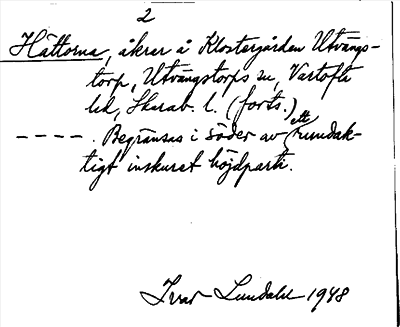 2
Håttorna, åkrar å Klostergården Utvängs-
torp, Utvängstorps sn, Vartofta
hd, Skarab. l. (forts.)
---- . Begränsas i söder av ett rundak-
tigt inskurat höjdparti.
Ivar Lundahl 1948